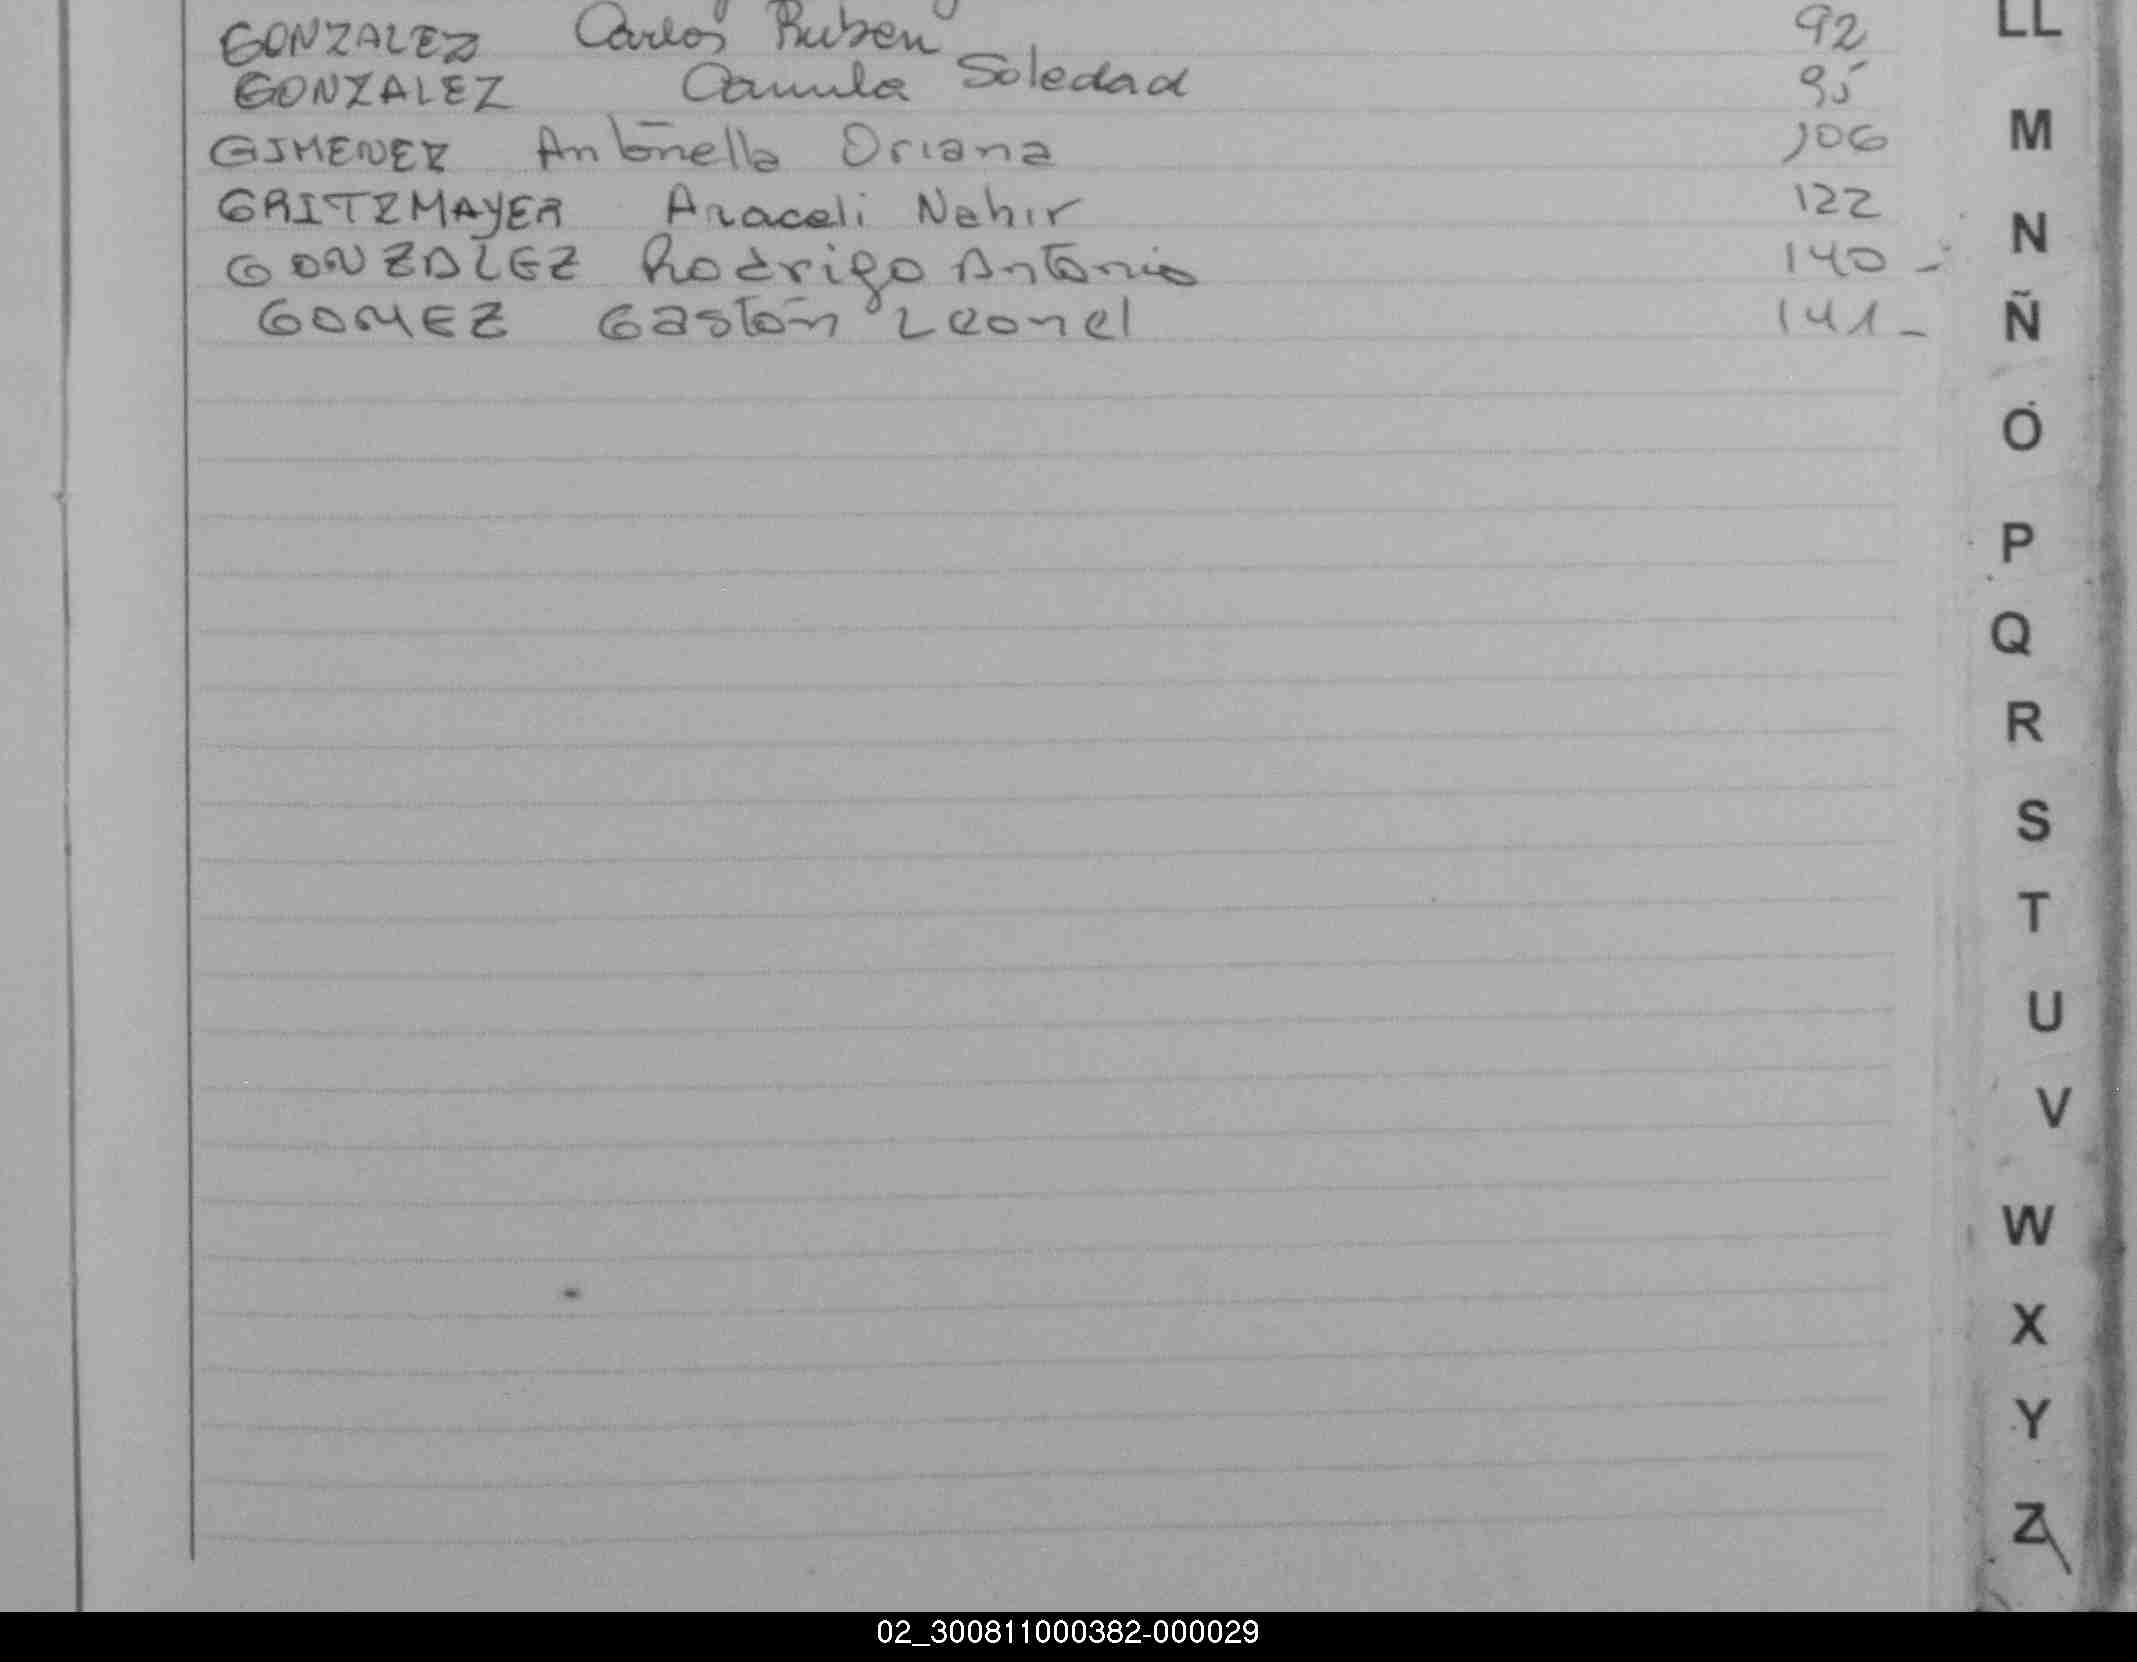 GONZALEZ Carlos Ruben 92
GONZALEZ Camila Soledad 95
GIMENEZ Antonella Oriana 106
GRITZMAYER Araceli Nahir 122
GONZALEZ Rodrigo Antonio 140 -
GOMEZ Gastón Leonel 141 -
LL
M
N
Ñ
O
P
Q
R
S
T
U
V
W
X
Y
Z
02_300811000382-000029